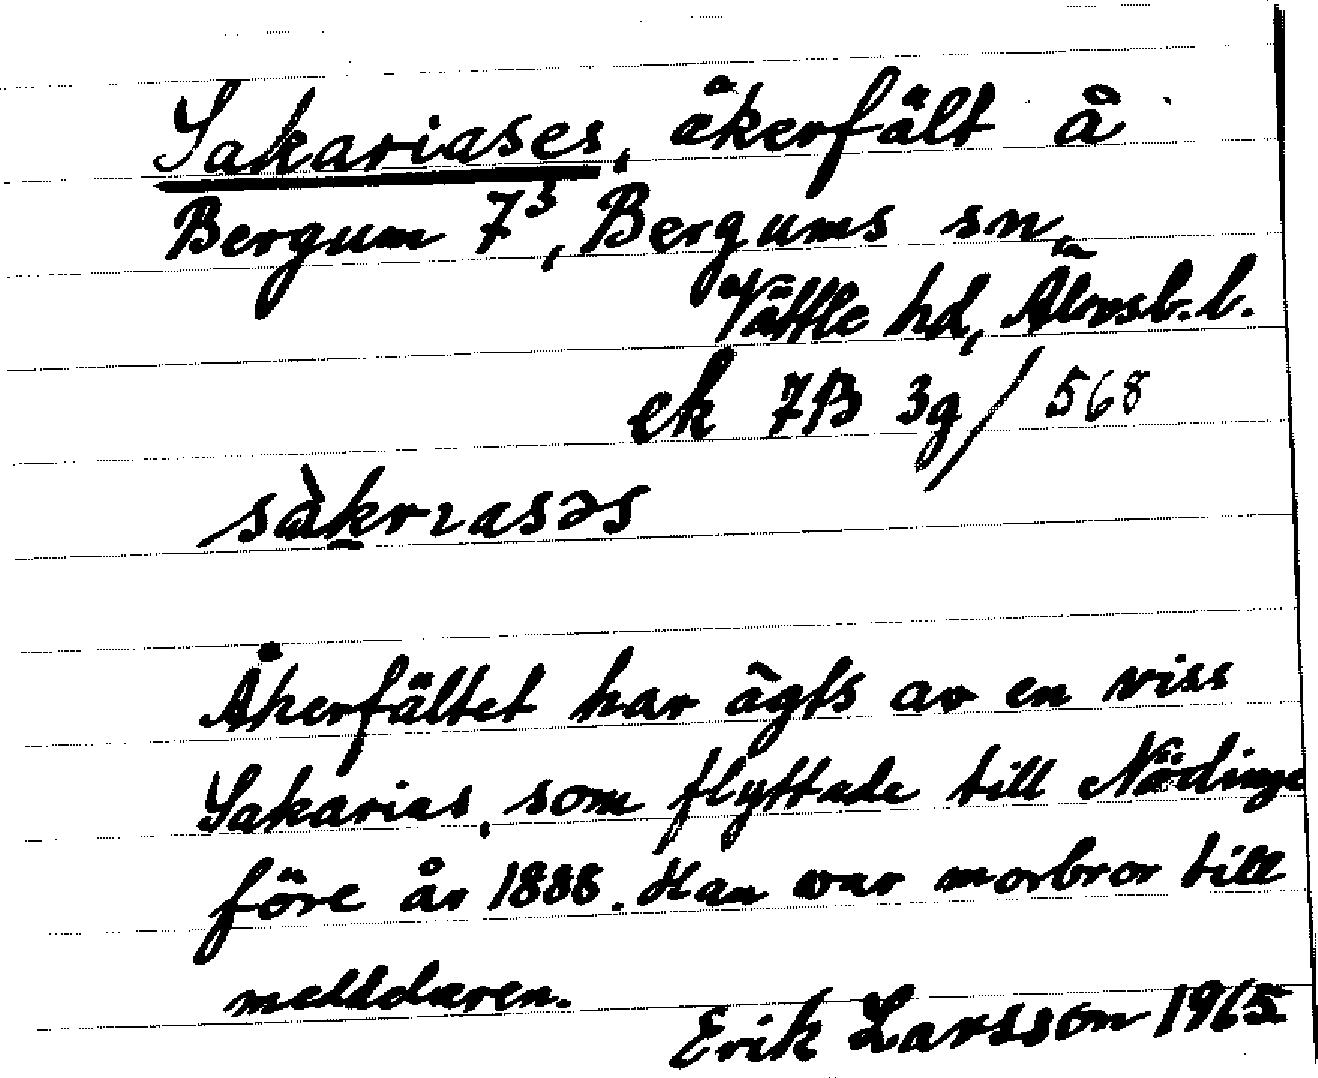 Sakariases, åkerfält å
Bergum 7³, Bergums sn,
Vättle hd, Älvsb. l.
ek 7B 3g / 568
sàkrıasəs
Åkerfältet har ägts av en viss
Sakarias, som flyttade till Nödinge
före år 1888. Han var morbror till
meddelaren.
Erik Larsson 1965